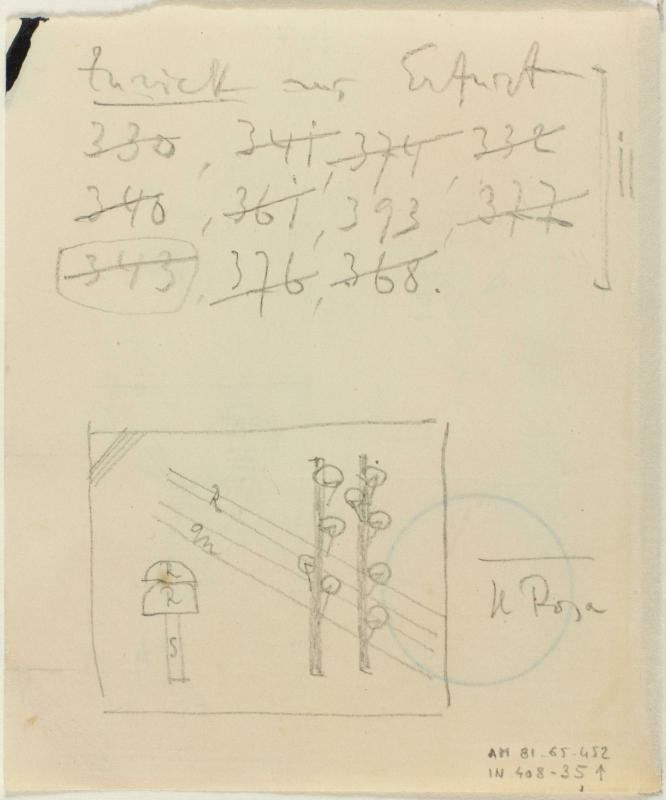 Zurück aus Erfurt
330, 341, 374, 332
340, 361, 393, 377
343, 376, 368.
R
gn
R
R
S
Rosa
AM 81-65-452
IN 408-35 ↑